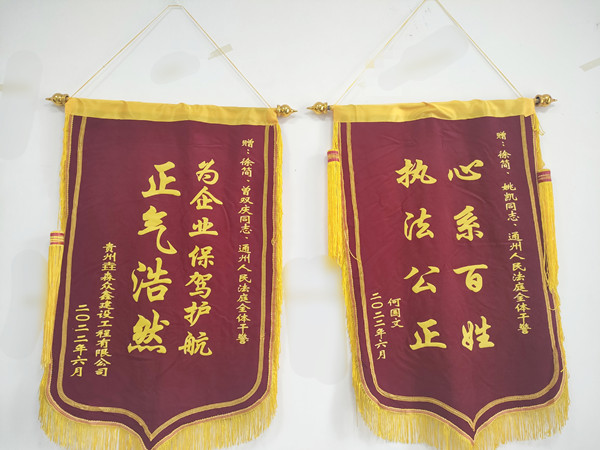 赠：徐简、曾双庆同志、通州人民法庭全体干警
为企业保驾护航
正气浩然
贵州垚森众鑫建设工程有限公司
二〇二二年六月
赠：徐简、姚凯同志、通州人民法庭全体干警
心系百姓
执法公正
何国文
二〇二二年六月